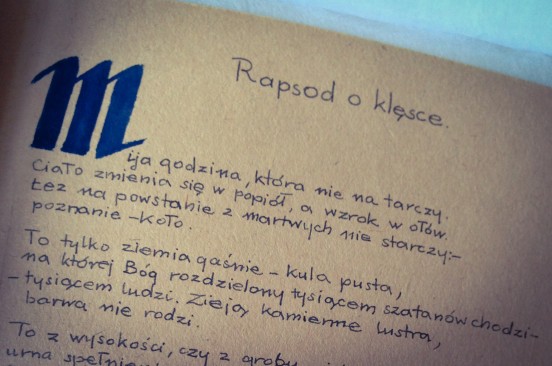 Rapsod o klęsce.
Mija godzina, która nie na tarczy.
Ciało zmienia się w popiół, a wzrok w ołów.
Łez na powstanie z martwych nie starczy:-
poznanie - koło.
To tylko ziemia gaśnie - kula pusta,
na której Bóg rozdzielony tysiącem szatanów chodzi-
- tysiącem ludzi. Zieją kamienne lustra,
barwa nie rodzi.
To z wysokości, czy z groby
urna